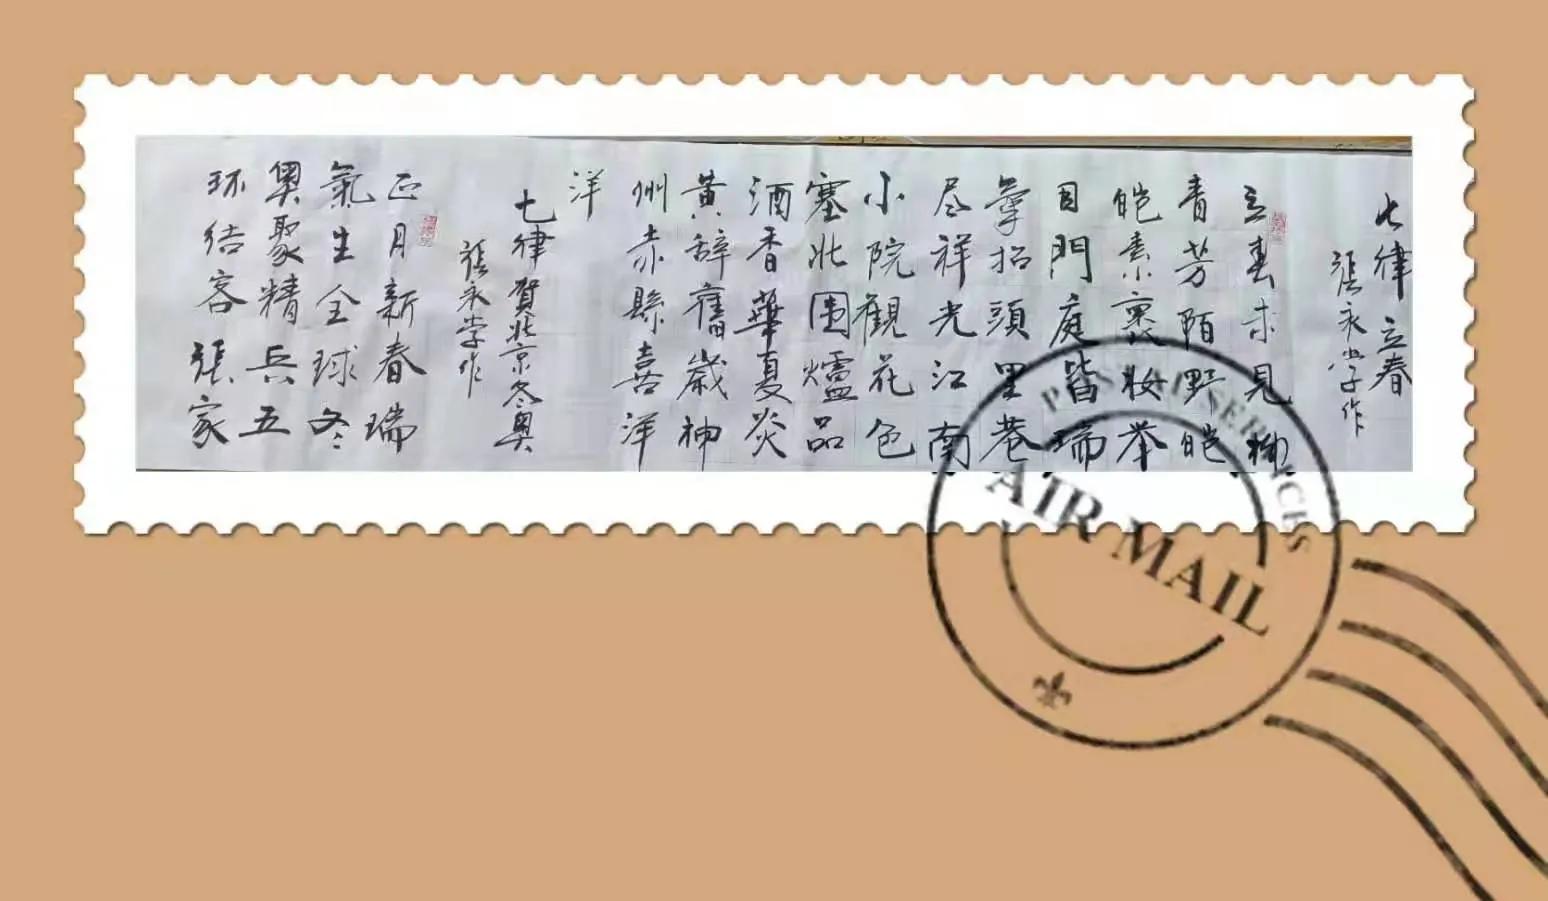 七律 立春
张永学作
立春未见柳
青芳陌野皑
皑素裹妆举
目門庭皆瑞
氣抬頭里巷
尽祥光江南
小院觀花色
塞北围爐品
酒香華夏炎
黄辞舊歲神
州赤縣喜洋
洋
七律 賀北京冬奥
张永学作
正月新春瑞
氣生全球冬
奥聚精兵五
环结客張家
POSTAL SERVICES
AIR MAIL